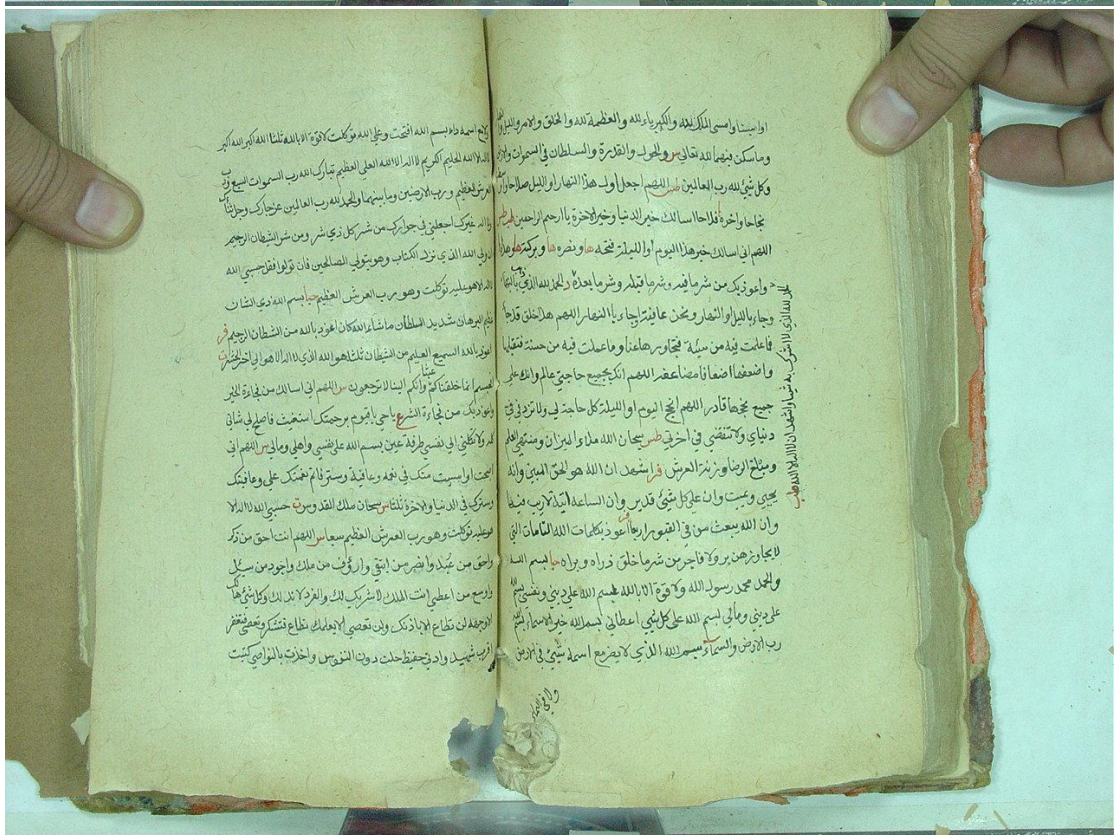 او امسينا وامسى الملك لله والكبرياء لله والعظمة لله والخلق والامر والليل والنهار
وما سكن فيهما لله تعالى س والحول والقدرة والسلطان في السموات والارض
وكل شيئ لله رب العالمين طس اللهم اجعل اول هذا النهار او الليل صلاحا واوسطه
نجاحا واخره فلاحا اسالك خير الدنيا وخير الاخرة يا ارحم الراحمين
اللهم انى اسالك خير هذا اليوم او الليلة فتحه ها ونصره ها وبركته ها وهداه
واعوذ بك من شر ما فيه وشر ما قبله وشر ما بعده د الحمد لله الذي ذهب بالنهار
وجاء بالليل او النهار ونحن عافية او جاء بالنهار اللهم هذا خلق قد جاء
فما عملت فيه من سيئة فتجاوز رها عنا وما عملت فيه من حسنة فتقبلها
واضعفها اضعافا مضاعفة اللهم انك بجميع حاجتي عالم وانك على
جميع نجحها قادر اللهم انجح اليوم او الليلة كل حاجة لي ولا تزدني في
دنياي ولا تنقصني في اخرتي طس سبحان الله ملاء الميزان ومنتهى العلم
ومبلغ الرضا وزنة العرش فر اشهد ان الله هو الحق المبين وانه
يحيي ويميت وان على كل شيئ قدير وان الساعة اتية لا ريب فيها
وان الله يبعث من في القبور اربعا فر اعوذ بكلمات الله التامات التي
لا يجاوزهن بر ولا فاجر من شر ما خلق وذراه وبراه حيا بسم الله
والحمد محمد رسول الله ولا قوة الا بالله بسم الله على ديني ونفسي بسم الله
على ديني ومالي بسم الله على كل شيئ اعطاني بسم الله خير الاسماء بسم الله
رب الارض والسماء بسم الله الذي لا يضر مع اسمه شيئ في الارض
ولا في السماء
الحمد لله الذي لا اشرك به شيئا واشهد ان لا اله الا الله طب
مع اسمه داء بسم الله افتتحت وعلى الله توكلت لا قوة الا بالله ثلثا الله اكبر الله اكبر
لا اله الا الله الحليم الكريم لا اله الا الله العلي العظيم تبارك الله رب السموات السبع ورب
العرش العظيم ورب الارضين وما بينهما والحمد لله رب العالمين عز جارك وجل ثناؤك
ولا اله غيرك اجعلني في جوارك من شر كل ذي شر ومن شر الشيطان الرجيم
ان وليي الله الذي نزل الكتاب وهو يتولى الصالحين فان تولوا فقل حسبي الله
لا اله الا هو عليه توكلت وهو رب العرش العظيم حيا بسم الله ذي الشان
عظيم البرهان شديد السلطان ما شاء الله كان اعوذ بالله من الشيطان الرجيم فر
اعوذ بالله السميع العليم من الشيطان ثلثه هو الله الذي لا اله الا هو الى اخر الحشر ت
افحسبتم انما خلقناكم عبثا وانكم الينا لا ترجعون س اللهم اني اسالك من فجاءة الخير
واعوذ بك من فجاءة الشر ع يا حي يا قيوم برحمتك استغيث فاصلح لي شاني
كله ولا تكلني الى نفسي طرفة عين بسم الله على نفسي واهلي ومالي س اللهم اني
اصبحت او امسيت منك في نعمة وعافية وستر فاتم نعمتك على وعافيتك
وسترك في الدنيا والاخرة ثلثا س سبحان ملك القدوس ت حسبي الله لا اله الا
هو عليه توكلت وهو رب العرش العظيم سبعا س اللهم انت احق من ذكر
واحق من عبد وانصر من ابتغي وارؤف من ملك واجود من سئل
واوسع من اعطى انت الملك لا شريك لك والفرد لا ند لك وكل شيئ هالك
الا وجهك لن تطاع الا باذنك ولن تعصى الا بعلمك تطاع فتشكر وتعصى فتغفر
اقرب شهيد وادنى حفيظ حلت دون النفوس واخذت بالنواصي كتبت